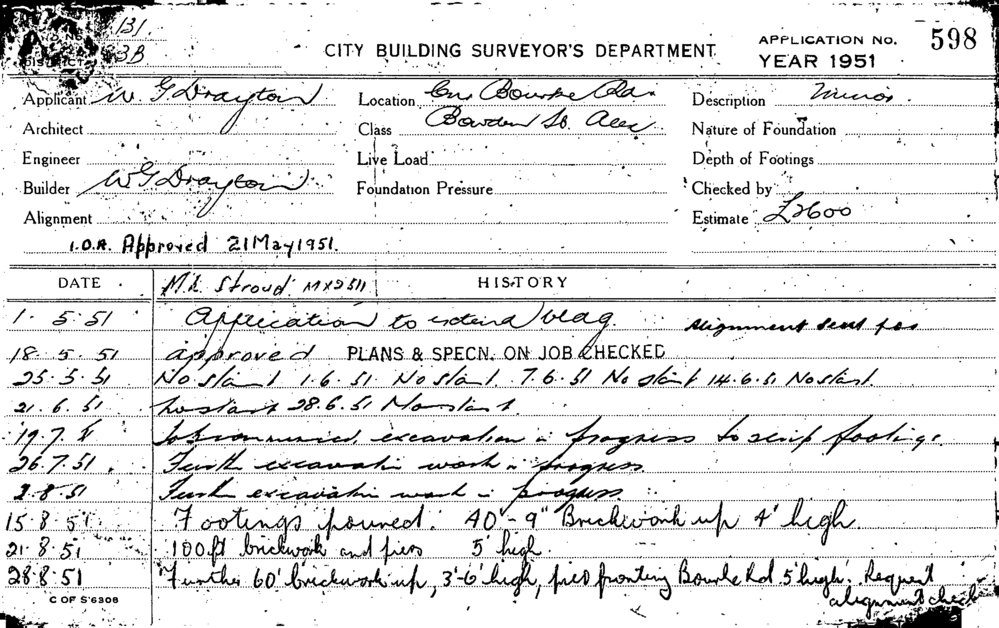 131
3B
DISTRICT
CITY BUILDING SURVEYOR'S DEPARTMENT
APPLICATION No. 598
YEAR 1951
Applicant W G Drayton
Location Cnr Bourke Rd.
Description Minor.
Architect
Class Bowden St. Alex.
Nature of Foundation
Engineer
Live Load
Depth of Footings
Builder W G Drayton
Foundation Pressure
Checked by
Alignment
Estimate £2600
I.O.A. Approved 21 May 1951.
DATE
Mr. Stroud. MX2511
HISTORY
1. 5. 51 Application to extend bldg. Alignment sent for
18. 5. 51 approved PLANS & SPECN. ON JOB CHECKED
25.5.51 No start 1.6.51 No start. 7.6.51 No start 14.6.51 No start.
21.6.51 No start 28.6.51 No start.
19.7.51 Job commenced, excavation in progress to strip footings.
26.7.51. Furth excavatin work in progress
2.8.51 Furth excavatin work in progress.
15.8.51 Footings poured. 40'-9" Brickwork up 4' high.
21.8.51 100ft brickwork and piers 5' high.
28.8.51 Further 60' brickwork up, 3'-6' high, pier fronting Bourke Rd 5' high. Request
alignment check
C OF S 6308